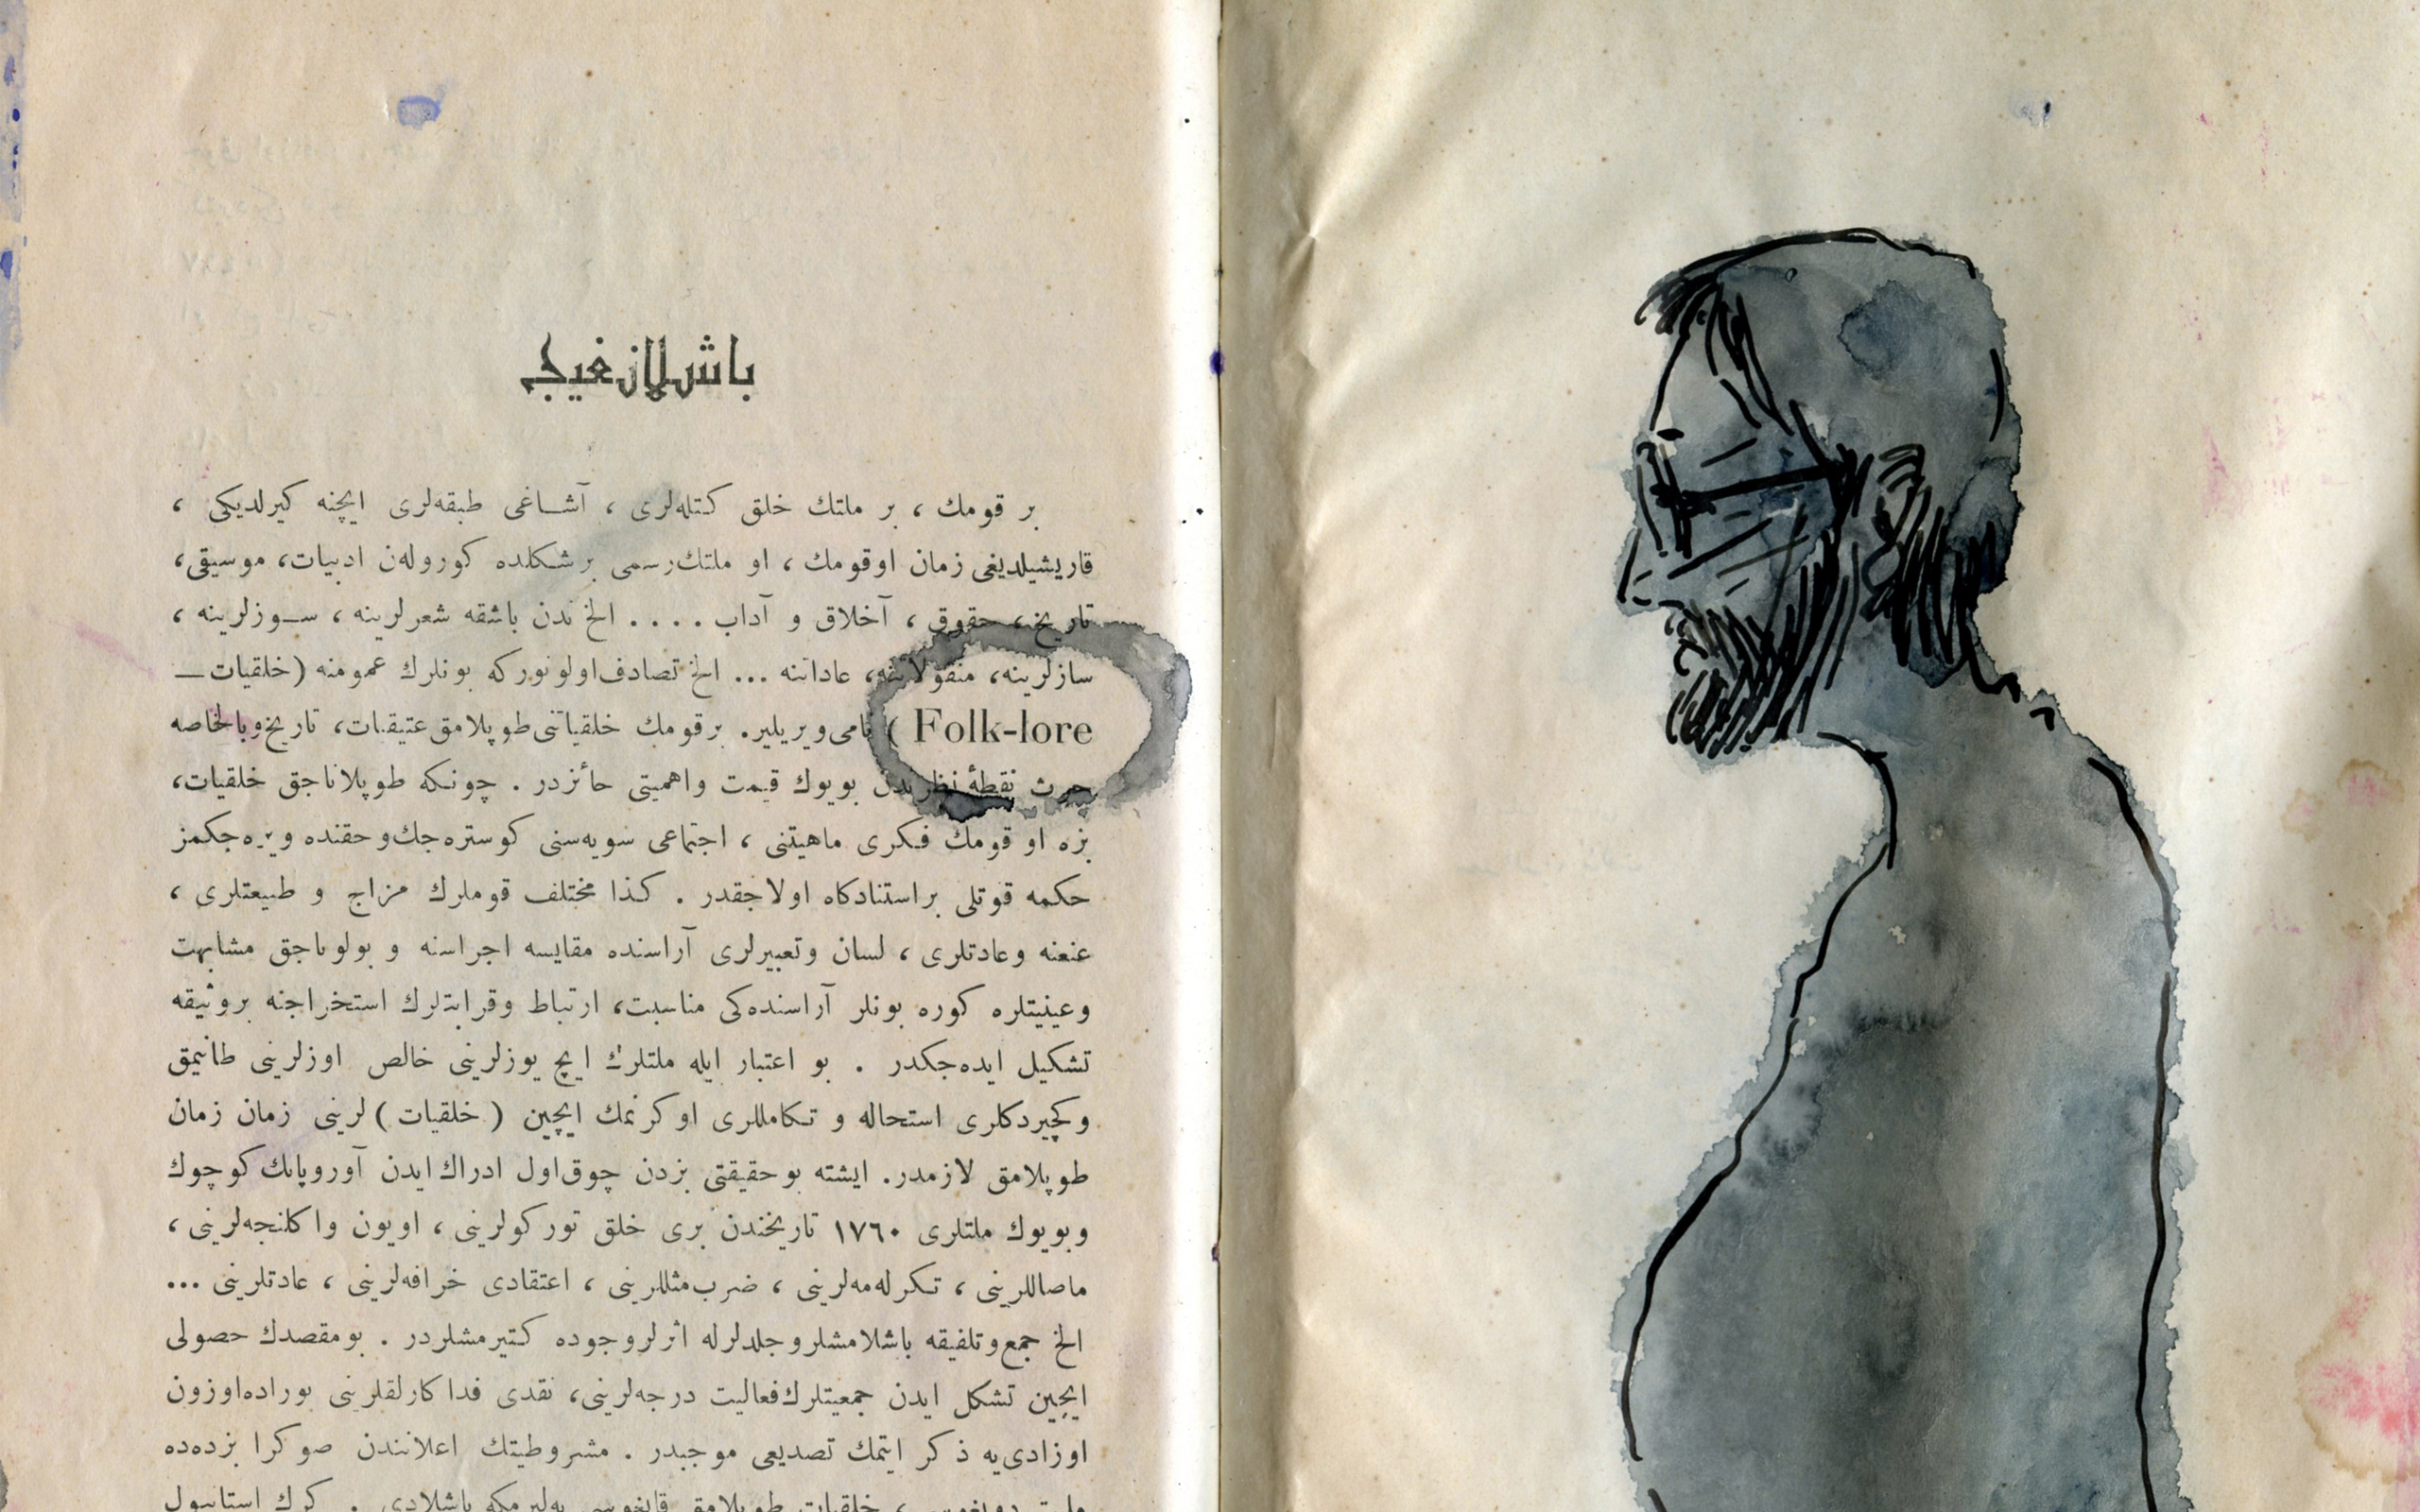 باشلانغیج
بر قومك ، بر ملتك خلق كتله‌لری ، آشاغی طبقه‌لری ایچنه كیرلدیكی ،
قاریشیلدیغی زمان اوقومك ، او ملتك رسمی بر شكلده كوروله‌ن ادبیات، موسیقی،
تاریخ، حقوق ، آخلاق و آداب . . . . الخ ندن باشقه شعرلرینه ، سوزلرینه ،
سازلرینه، منقولاتنه، عاداتنه ... الخ تصادف اولونوركه بونلرك عمومنه (خلقیات ـ
Folk-lore ) نامی ویریلیر. برقومك خلقیاتنی طوپلامق عتیقیات، تاریخ وبالخاصه
حرث نقطهٔ نظرندن بویوك قیمت واهمیتی حائزدر . چونكه طوپلاناجق خلقیات،
بزه او قومك فكری ماهیتنی ، اجتماعی سویه‌سنی كوستره‌جك وحقنده ویره‌جكمز
حكمه قوتلی براستنادكاه اولاجقدر . كذا مختلف قوملرك مزاج و طبیعتلری ،
عنعنه وعادتلری ، لسان وتعبیرلری آراسنده مقایسه اجراسنه و بولوناجق مشابهت
وعینیتلره كوره بونلر آراسنده‌كی مناسبت، ارتباط وقرابتلرك استخراجنه بروثیقه
تشكیل ایده‌جكدر . بو اعتبار ایله ملتلرك ایچ یوزلرینی خالص اوزلرینی طانیمق
وكچیردكلری استحاله و تكامللری اوكرنمك ایچین ( خلقیات ) لرینی زمان زمان
طوپلامق لازمدر. ایشته بوحقیقتی بزدن چوق اول ادراك ایدن آوروپانك كوچوك
وبویوك ملتلری ١٧٦٠ تاریخندن بری خلق توركولرینی ، اویون واكلنجه‌لرینی ،
ماصاللرینی ، تكرله‌مه‌لرینی ، ضرب مثللرینی ، اعتقادی خرافه‌لرینی ، عادتلرینی ...
الخ جمع وتلفیقه باشلامشلر وجلدلرله اثرلر وجوده كتیرمشلردر . بومقصدك حصولی
ایچین تشكل ایدن جمعیتلرك فعالیت درجه‌لرینی، نقدی فداكارلقلرینی بوراده اوزون
اوزادی‌یه ذكر ایتمك تصدیعی موجبدر . مشروطیتك اعلانندن صوكرا بزده‌ده
خلقیات طوپلامق باشلادی . كرك استانبول